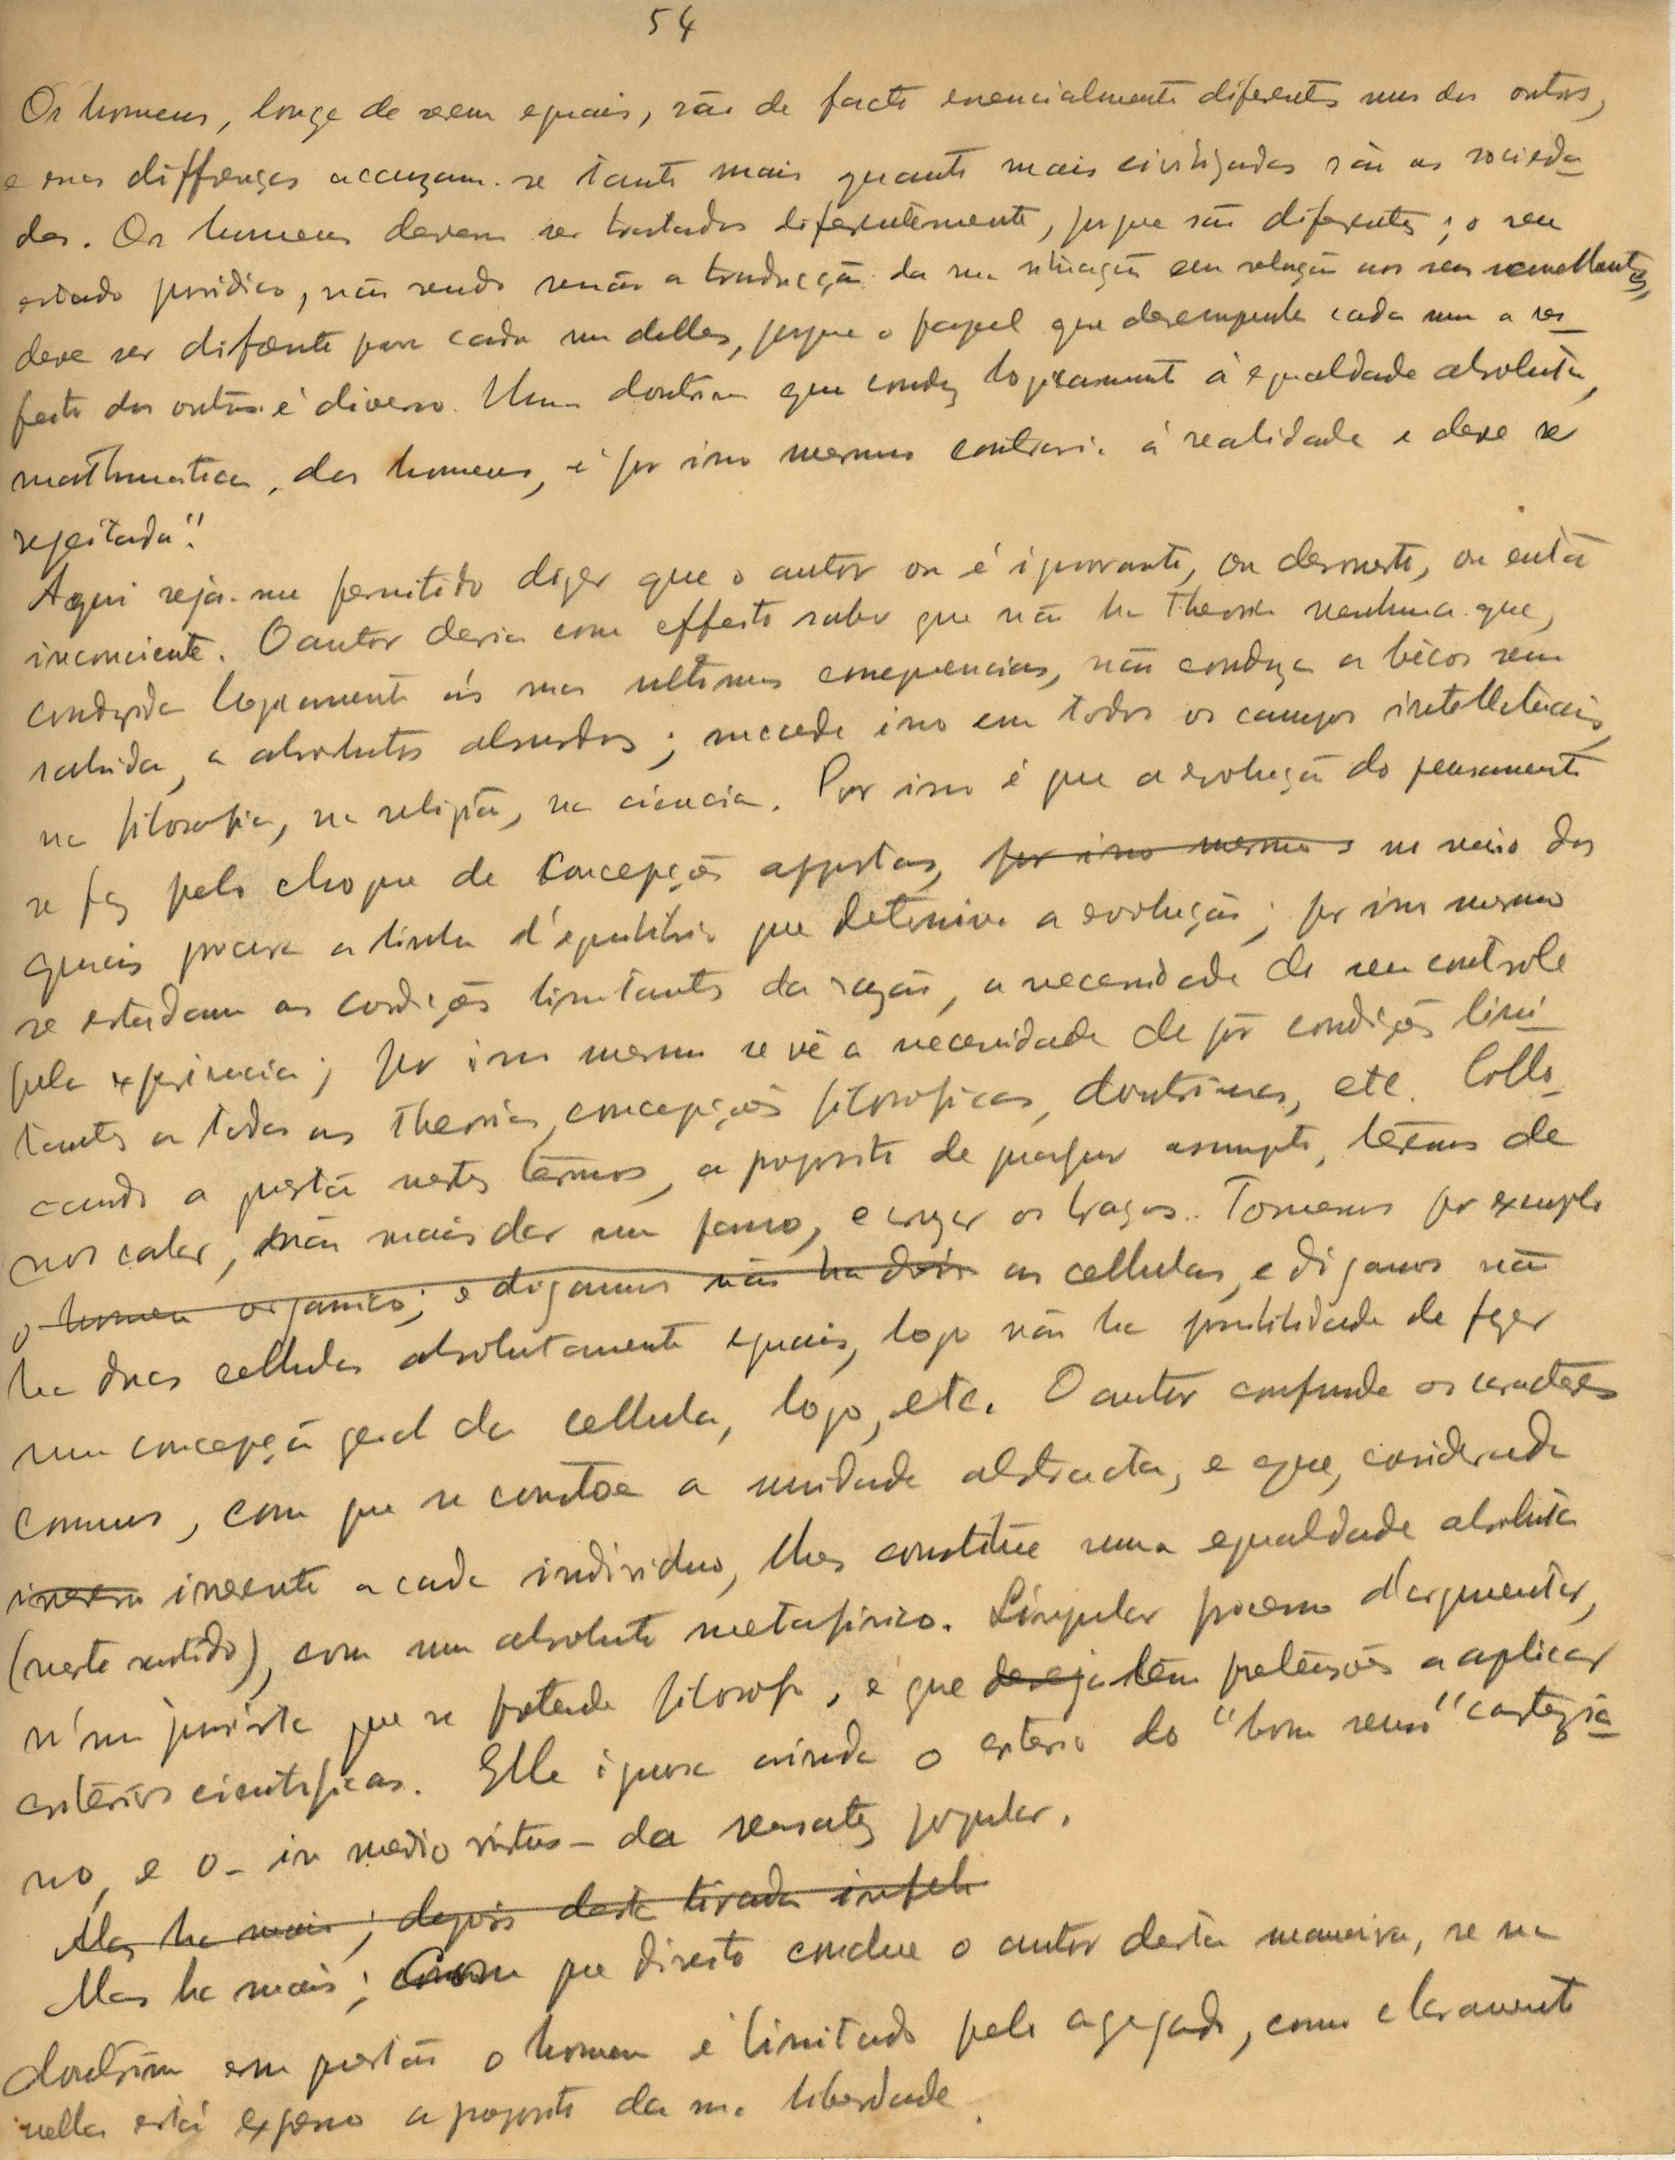 54
Os homens, longe de serem eguais, são de facto essencialmente diferentes uns dos outros,
e essas differenças accuzam-se tanto mais quanto mais civilizadas são as socieda-
des. Os homens devem ser tratados diferentemente, porque são diferentes; o seu
estado juridico, não sendo senão a traducção da sua situação em relação aos seus semelhantes,
deve ser diferente para cada um delles, porque o papel que desempenha cada um a res-
peito dos outros é diverso. Uma doutrina que conduz logicamente à egualdade absoluta,
mathematica, dos homens, é por isso mesmo contraria á realidade e deve ser
rejeitada".
Aqui seja-me permitido dizer que o autor ou é ignorante, ou deshonesto, ou então
inconciente. O autor devia com effeito saber que não ha theoria nenhuma que,
conduzida logicamente ás suas ultimas consequencias, não conduza a bêcos sem
sahida, a absolutos absurdos; succede isso em todos os campos intelletuais,
na filosofia, na religião, na ciencia. Por isso é que a evolução do pensamento
se faz pelo choque de concepções oppostas, por isso mesmo s no meio das
quais procura a linha d'equilibrio que determina a evolução; por isso mesmo
se estudam as condições limitantes da razão, a necessidade de seu controle
pela experiencia; por isso mesmo se vê a necessidade de pôr condições limi-
tantes a todas as theorias, concepções filosoficas, doutrinas, etc. Collo-
cando a questão nestes têrmos, a proposito de qualquer assumpto, têrmos de
nos calar, não mais dar um passo, e cruzar os braços. Tomemos por exemplo
o homem organico; e digamos não ha dois as cellulas, e digamos não
ha duas cellulas absolutamente eguais, logo não ha possibilidade de fazer
uma concepção geral da cellula, logo, etc. O autor confunde os caracteres
comuns, com que se constroe a unidade abstracta, e que, considerada
inerente a cada individuo, lhes constitue uma egualdade absoluta
(neste sentido), com um absoluto metafisico. Singular processo d'argumentar,
n'um jurista que se pretende filosofo, e que deseja têm pretensões a aplicar
critérios cientificos. Elle ignora ainda o criterio do "bom senso" cartezia-
no, e o - in medio virtus - da sensatez popular.
Mas ha mais; depois desta tirada infeli
Mas ha mais; com que direito conclue o autor desta maneira, se na
doutrina em questão o homem é limitado pelo agregado, como claramente
nella está expresso a proposito da sua liberdade.